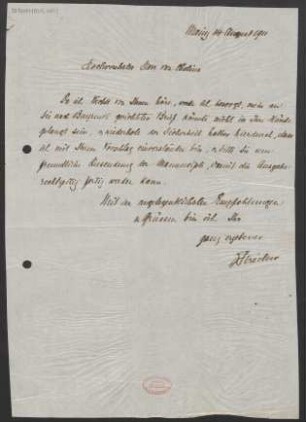 Mainz 14 August 1911
Da ich Nichts von Ihnen höre, und ich besorgt, mein an
Sie nach Bayreuth gerichteter Brief könnte nicht in Ihre Hände
gelangt sein, wiederhole der Sicherheit halber hierdurch, dass
ich mit Ihrem Vorschlag einverstanden bin, u. bitte Sie um
freundliche Zusendung des Manuscripts, damit die Ausgabe
rechtzeitig fertig werden kann.
Mit den angelegentlichsten Empfehlungen
u. Grüssen bin ich Ihr
ganz ergebener